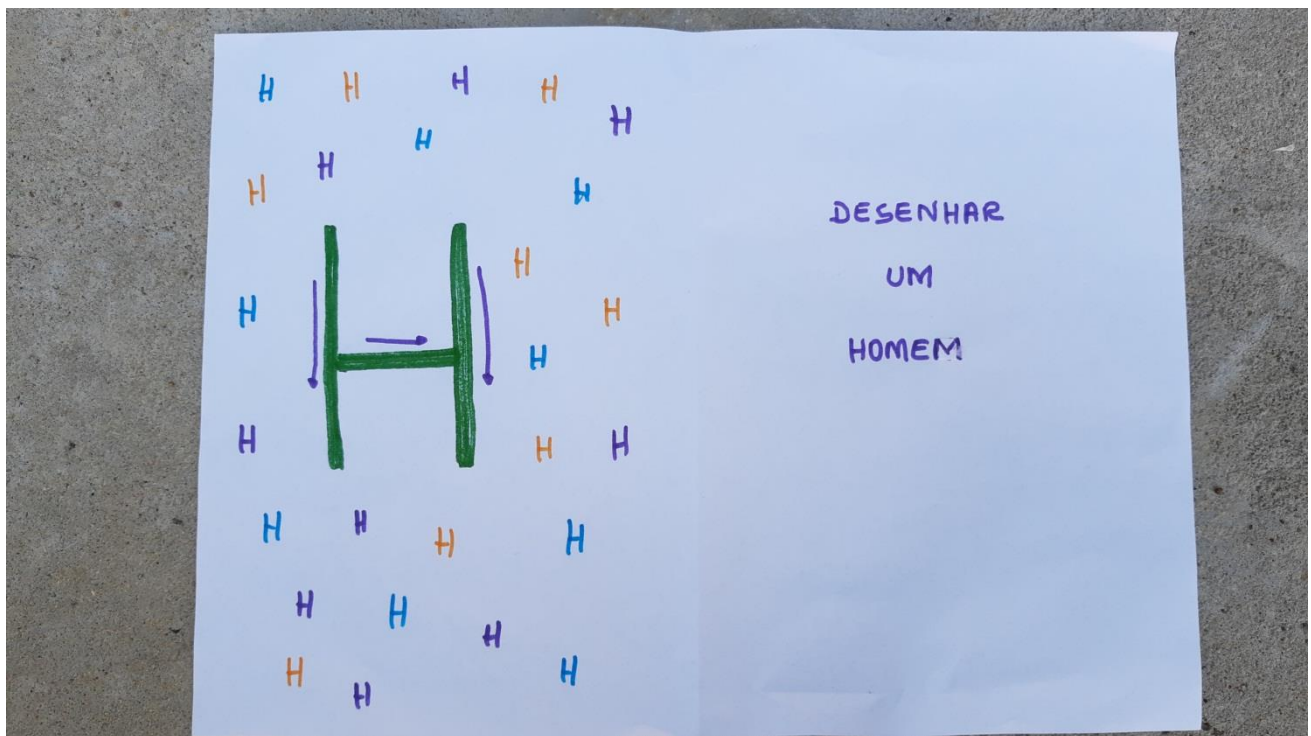 H H H H
H
H
H
H
H
H
H
H
H
H
H
H
H H
H H H H
H H
H
H H
H
DESENHAR
UM
HOMEM